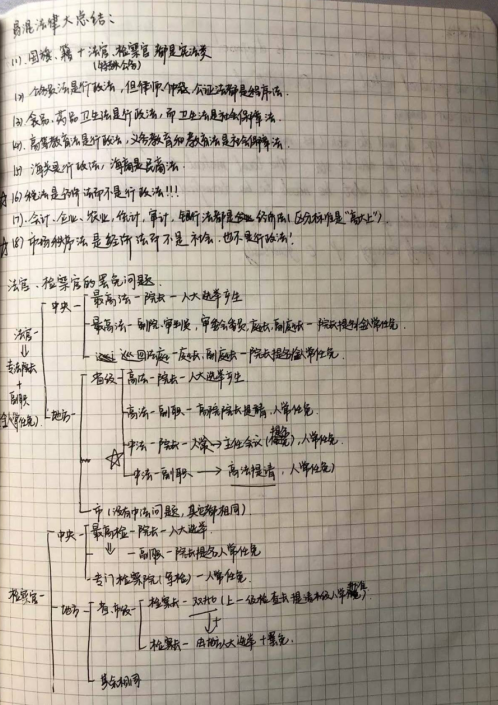 易混法律大总结:
(1). 国旗、籍 + 法官、检察官 都是宪法类
(2) 公务员法是行政法, 但律师、仲裁、公证法都是程序法.
(3) 食品、药品卫生法是行政法, 而卫生法是社会保障法.
(4) 高等教育法是行政法, 义务教育和教育法是社会保障法.
(5) 海关是行政法, 海商是民商法.
(6) 税法是经济法而不是行政法!!!
(7). 会计、企业、农业、统计、审计、银行法都是经济法(区分标准是"高大上").
(8) 市场秩序法是经济法而不是社会、也不是行政法!
法官、检察官的罢免问题.
法官
中央
最高法-院长-人大选举产生
最高法-副院、审判员、审委会委员、庭长、副庭长-院长提请人常任免.
巡回法庭-庭长、副庭长-院长提请人常任免.
专法院长
+
副职
人常任免
地方
省级
高法-院长-人大选举产生
高法-副职-高院院长提请, 人常任免.
中法-院长-人常→主任会议(提名), 人常任免.
中法-副职→高法提请, 人常任免)
市(没有中法问题, 其它都相同)
检察官
中央
最高检-院长-人大选举.
-副职-院长提名人常任免
专门检察院(军检)-人常任免.
地方
省、市级
检察长-双批(上一级检查长提请本级人常批准)
检察长-由地方人大选举+罢免.
其余相同